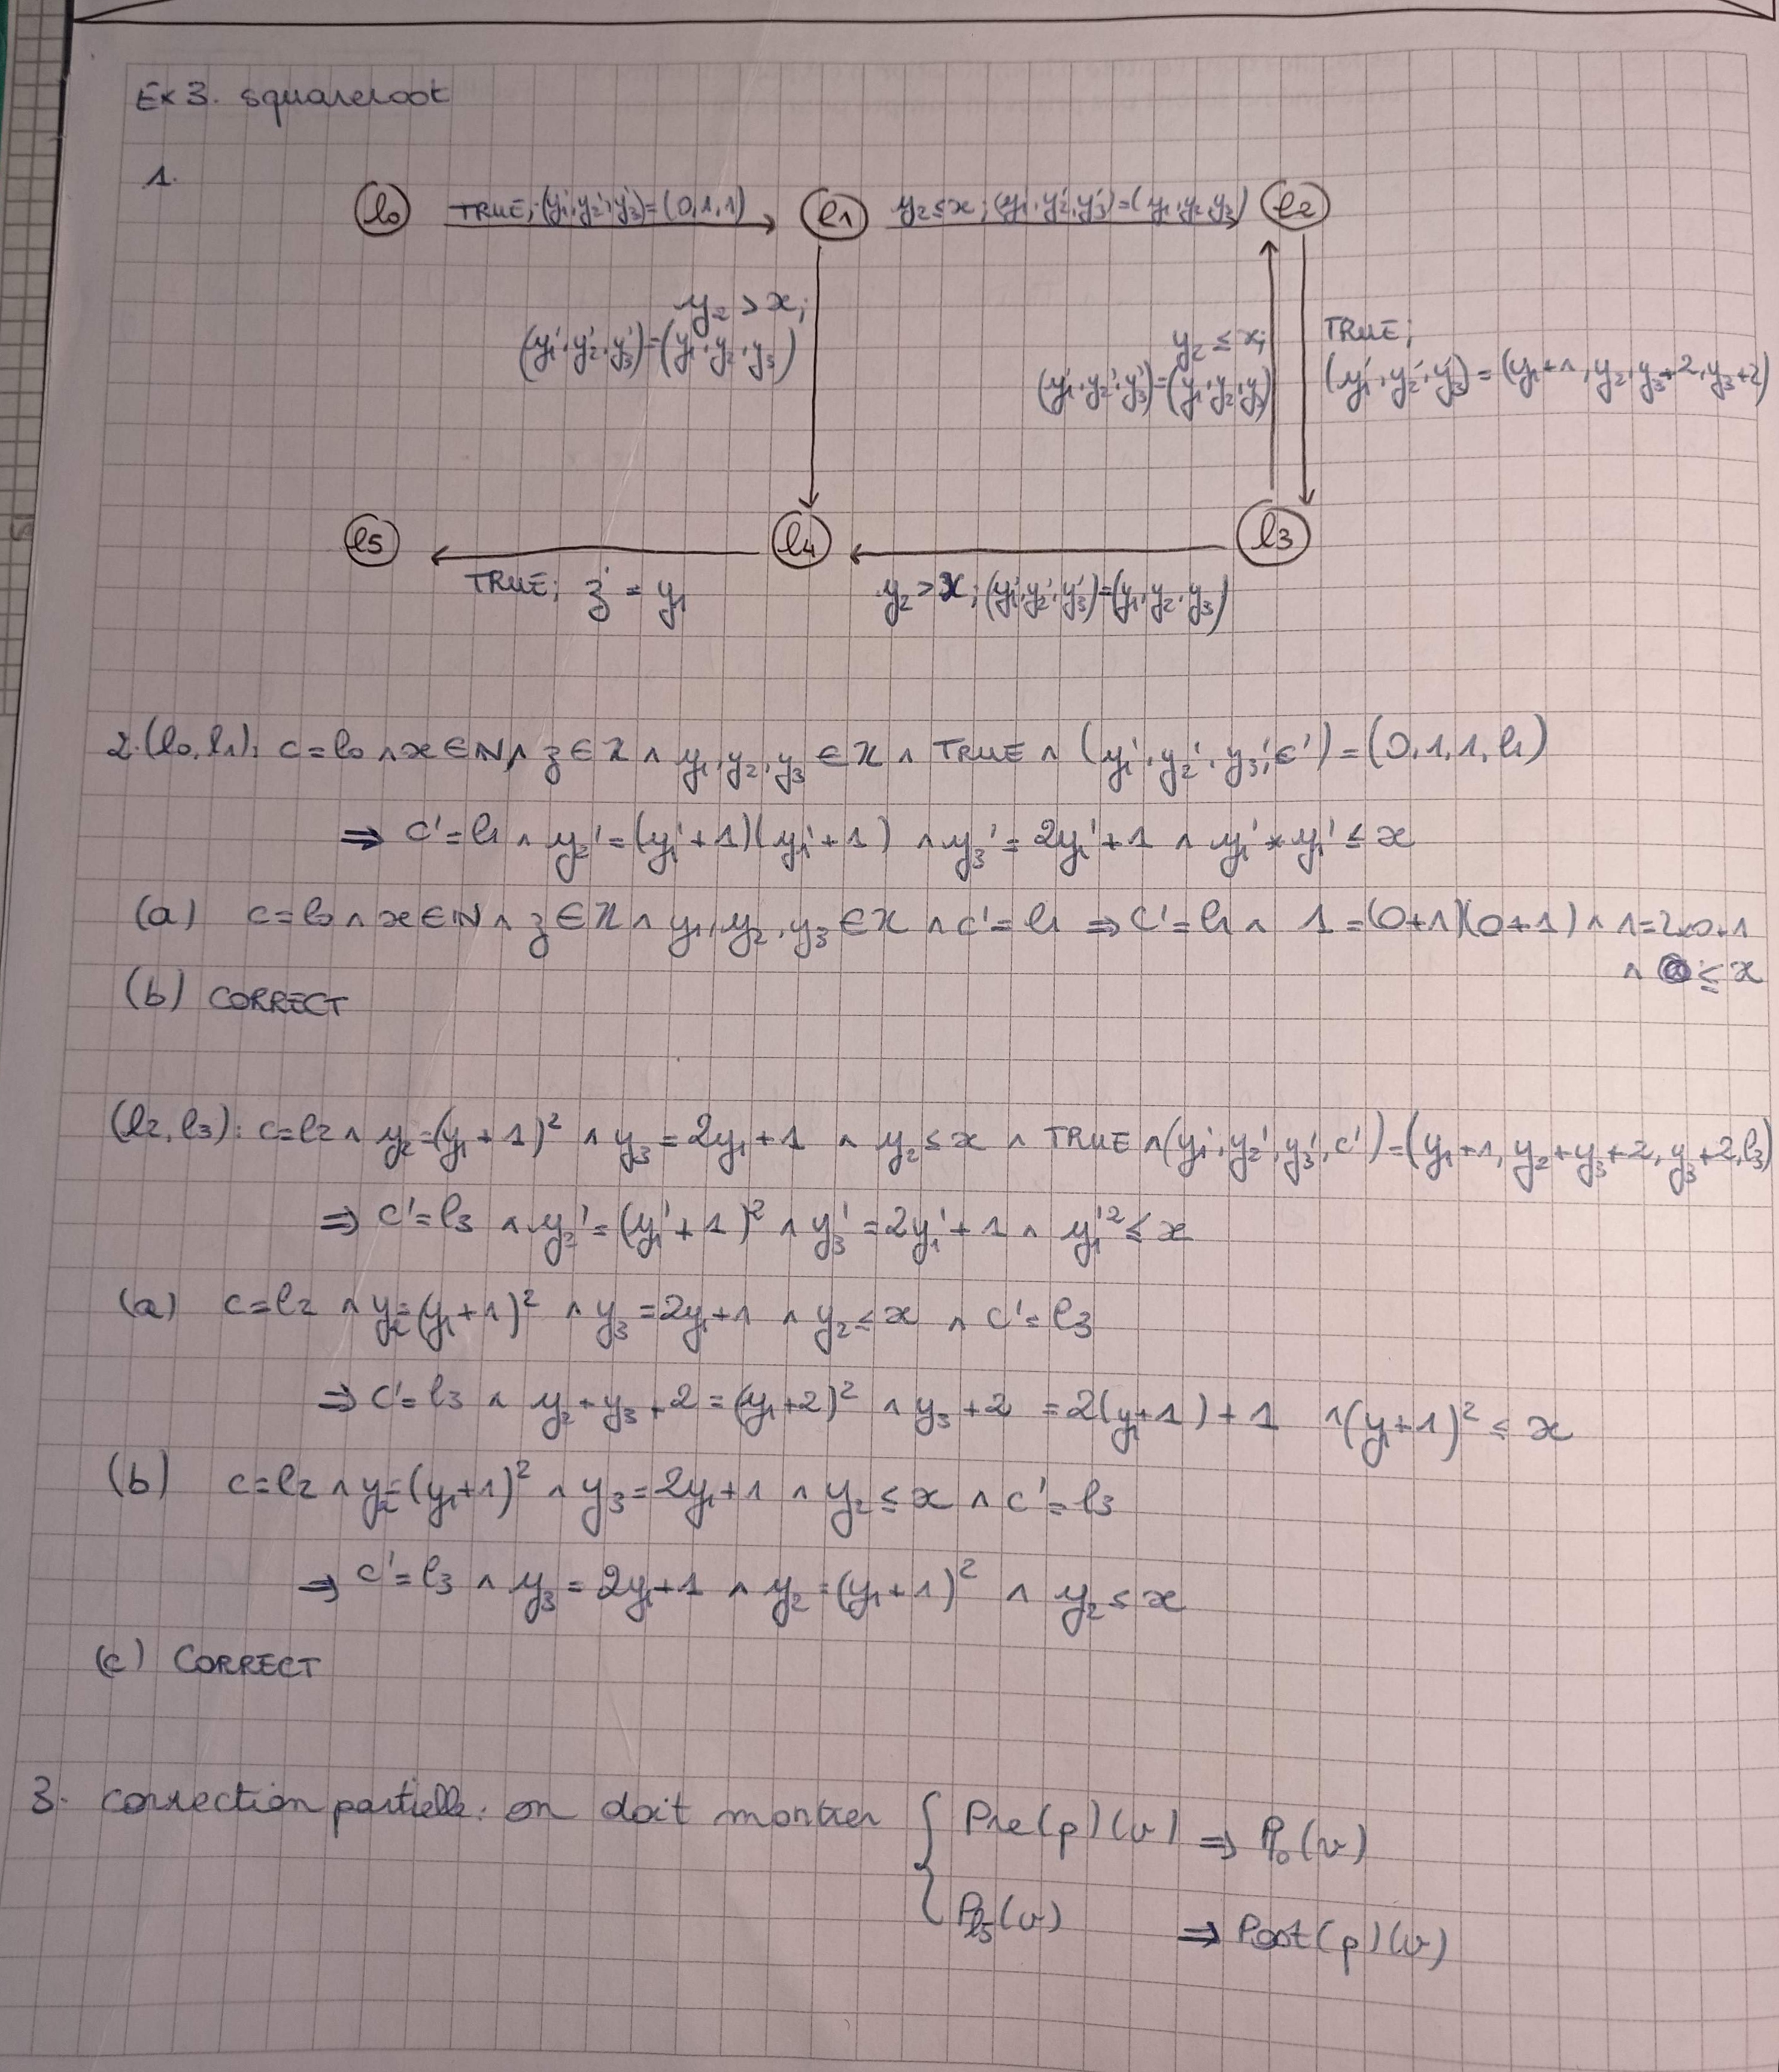 Ex 3. squareroot
1.
l0 TRUE; (y1', y2', y3') = (0, 1, 1) l1 y2 ≤ x; (y1', y2', y3') = (y1, y2, y3) l2
y2 > x;
(y1', y2', y3') = (y1, y2, y3)
y2 ≤ x;
(y1', y2', y3') = (y1, y2, y3)
TRUE;
(y1', y2', y3') = (y1+1, y2, y3+2, y3+2)
l5 l4 l3
TRUE; z' = y1
y2 > x; (y1', y2', y3') = (y1, y2, y3)
2. (l0, l1): c = l0 ∧ x ∈ N ∧ z ∈ Z ∧ y1, y2, y3 ∈ Z ∧ TRUE ∧ (y1', y2', y3', c') = (0, 1, 1, l1)
⇒ c' = l1 ∧ y2' = (y1' + 1)(y1' + 1) ∧ y3' = 2y1' + 1 ∧ y1' * y1' ≤ x
(a) c = l0 ∧ x ∈ N ∧ z ∈ Z ∧ y1, y2, y3 ∈ Z ∧ c' = l1 ⇒ c' = l1 ∧ 1 = (0+1)(0+1) ∧ 1 = 2×0+1
∧ 0 ≤ x
(b) CORRECT
(l2, l3): c = l2 ∧ y2 = (y1 + 1)² ∧ y3 = 2y1 + 1 ∧ y2 ≤ x ∧ TRUE ∧ (y1', y2', y3', c') = (y1+1, y2+y3+2, y3+2, l3)
⇒ c' = l3 ∧ y2' = (y1' + 1)² ∧ y3' = 2y1' + 1 ∧ y1'² ≤ x
(a) c = l2 ∧ y2 = (y1 + 1)² ∧ y3 = 2y1 + 1 ∧ y2 ≤ x ∧ c' = l3
⇒ c' = l3 ∧ y2 + y3 + 2 = (y1 + 2)² ∧ y3 + 2 = 2(y1 + 1) + 1 ∧ (y1 + 1)² ≤ x
(b) c = l2 ∧ y2 = (y1 + 1)² ∧ y3 = 2y1 + 1 ∧ y2 ≤ x ∧ c' = l3
⇒ c' = l3 ∧ y3 = 2y1 + 1 ∧ y2 = (y1 + 1)² ∧ y2 ≤ x
(c) CORRECT
3. correction partielle: on doit montrer { Pre(p)(v) ⇒ Pl0(v)
Pl5(v) ⇒ Post(p)(v)